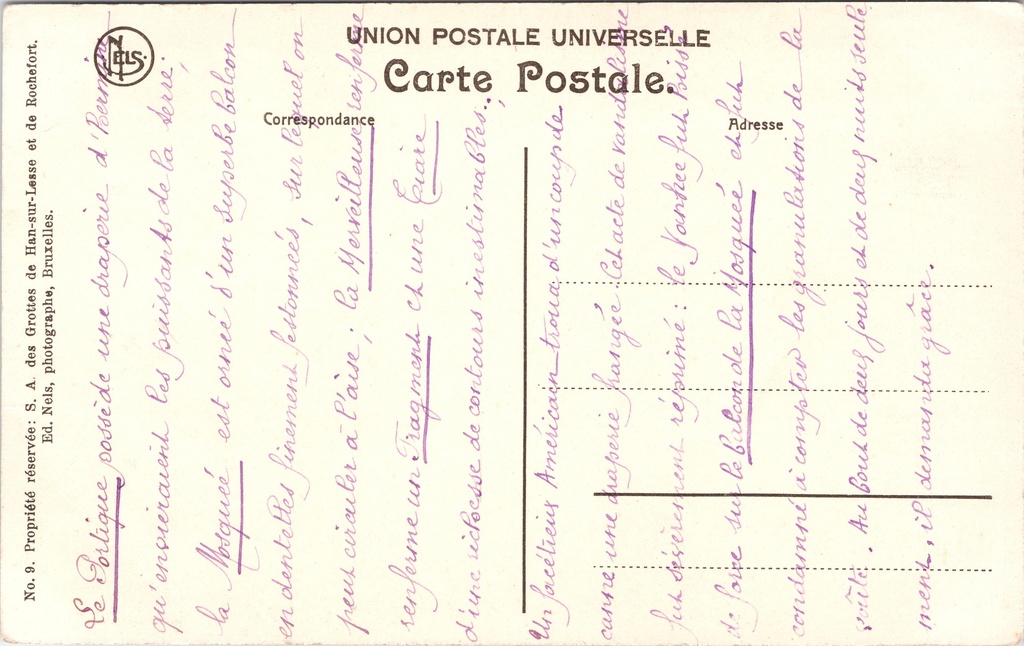 UNION POSTALE UNIVERSELLE
Carte Postale.
Correspondance
Adresse
NELS.
No. 9. Propriété réservée: S. A. des Grottes de Han-sur-Lesse et de Rochefort.
Ed. Nels, photographe, Bruxelles.
Le Portique possède une draperie d'
qu'envieraient les puissants de la terre;
la Mosquée est orné d'un superbe balcon
en dentelles finement festonnées, sur lequel on
peut circuler à l'aise; la Merveilleuse enferme
renferme un Fragment et une Tiare
d'une richesse de contours inestimables..
Un facétieux Américain troua d'un coup de
canne une draperie frangée. Cet acte de vandalisme
fut sévèrement réprimé: le Yankee fut hissé
de force sur le balcon de la Mosquée et fut
condamné à compter les granulations de la
voûte. Au bout de deux jours et de deux nuits seule
ment, il demanda grâce.